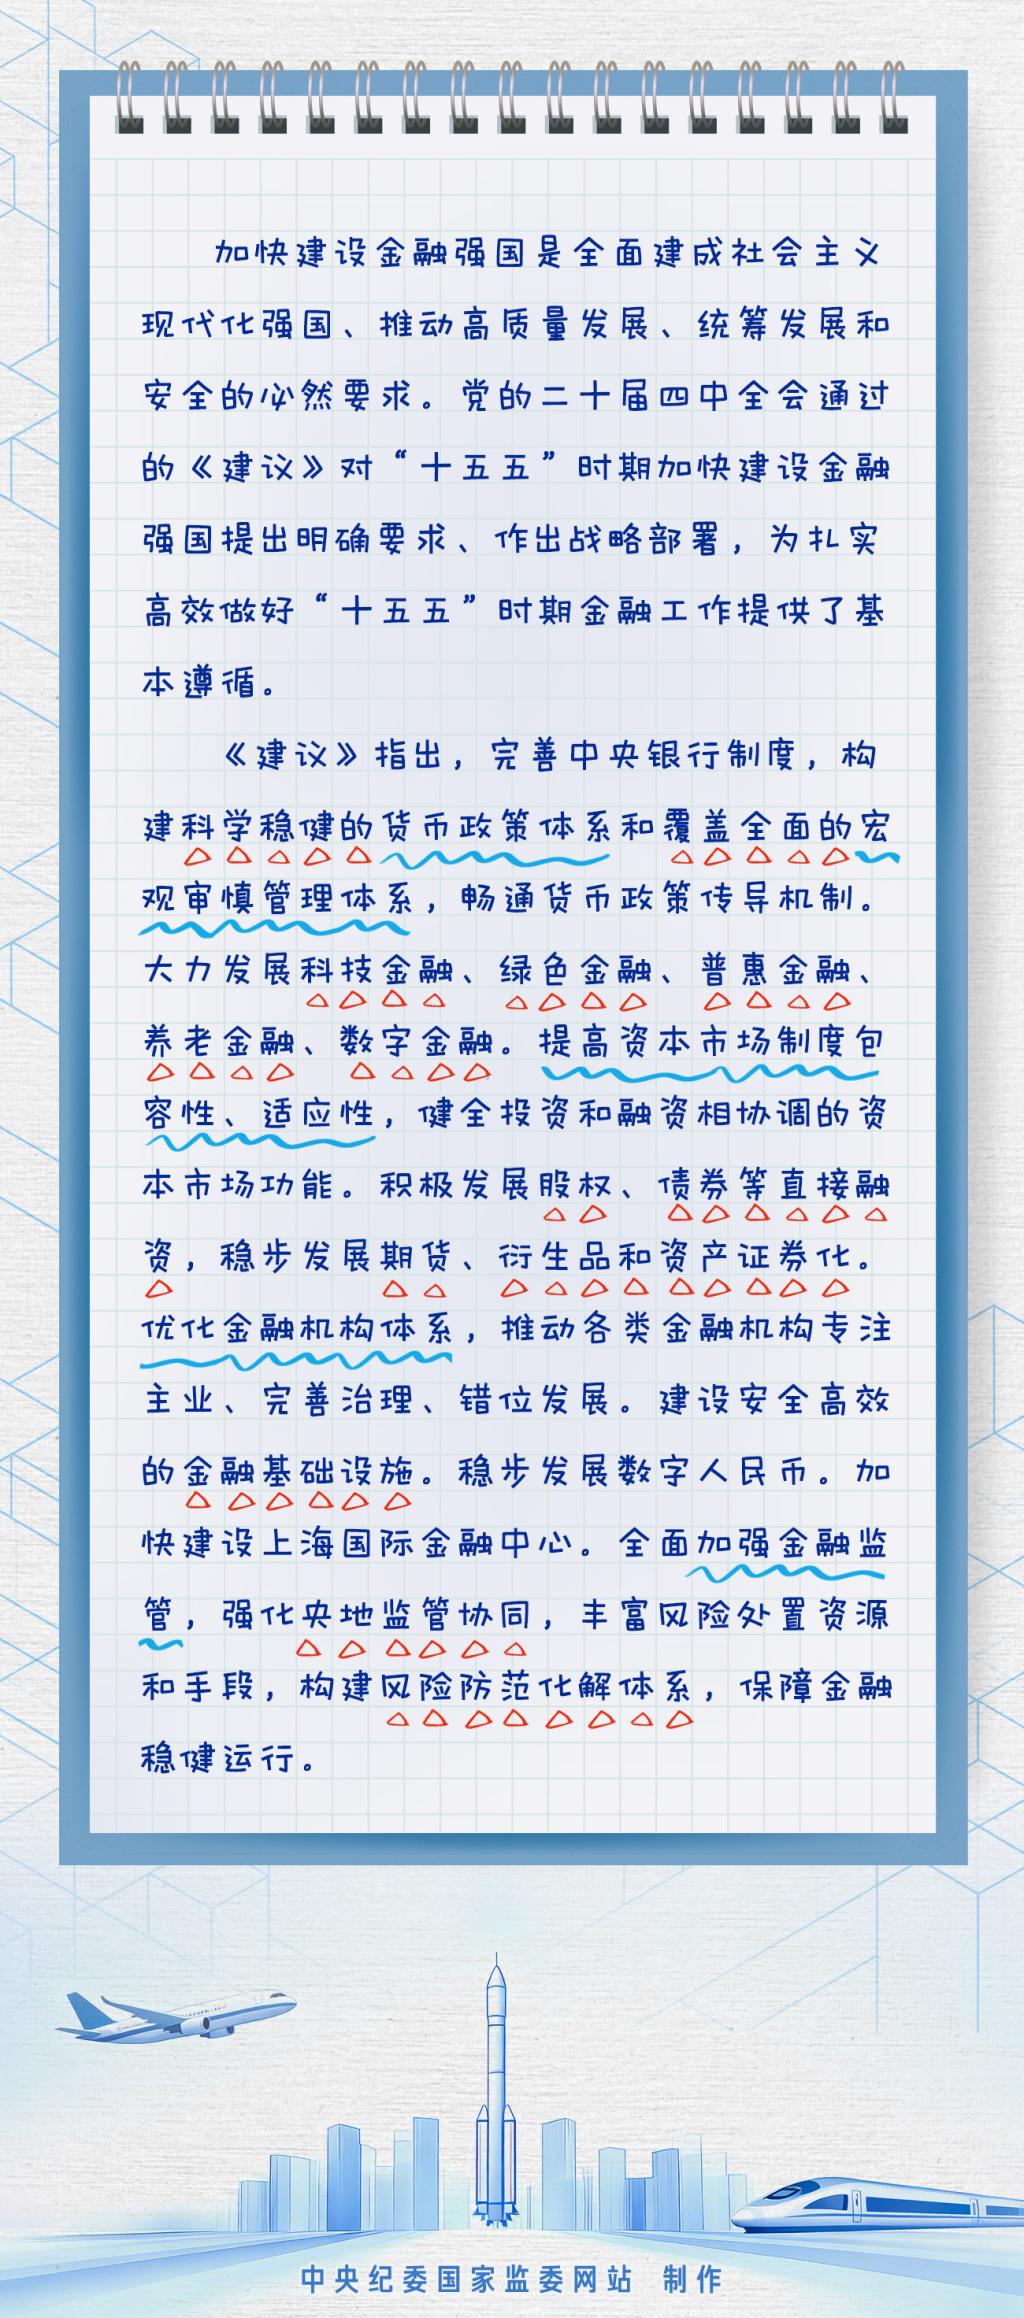 加快建设金融强国是全面建成社会主义
现代化强国、推动高质量发展、统筹发展和
安全的必然要求。党的二十届四中全会通过
的《建议》对“十五五”时期加快建设金融
强国提出明确要求、作出战略部署，为扎实
高效做好“十五五”时期金融工作提供了基
本遵循。
《建议》指出，完善中央银行制度，构
建科学稳健的货币政策体系和覆盖全面的宏
观审慎管理体系，畅通货币政策传导机制。
大力发展科技金融、绿色金融、普惠金融、
养老金融、数字金融。提高资本市场制度包
容性、适应性，健全投资和融资相协调的资
本市场功能。积极发展股权、债券等直接融
资，稳步发展期货、衍生品和资产证券化。
优化金融机构体系，推动各类金融机构专注
主业、完善治理、错位发展。建设安全高效
的金融基础设施。稳步发展数字人民币。加
快建设上海国际金融中心。全面加强金融监
管，强化央地监管协同，丰富风险处置资源
和手段，构建风险防范化解体系，保障金融
稳健运行。
中央纪委国家监委网站 制作